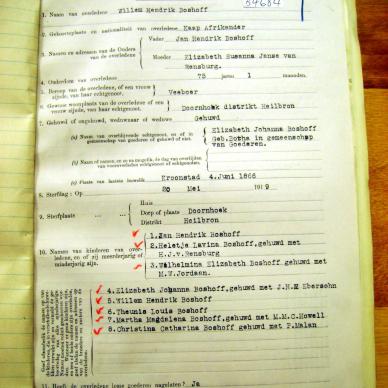 54684
1. Naam van overledene Willem Hendrik Boshoff
2. Geboorteplaats en nationaliteit van overledene Kaap Afrikander
3. Namen en adressen van de Ouders van de overledene
Vader Jan Hendrik Boshoff
Moeder Elizabeth Susanna Janse van Rensburg.
4. Ouderdom van overledene 75 jaren 1 maanden.
5. Beroep van de overledene, of een vrouw zijnde, van haar echtgenoot. Veeboer
6. Gewone woonplaats van de overledene of een vrouw zijnde, van haar echtgenoot Doornhoek distrikt Heilbron
7. Gehuwd of ongehuwd, weduwnaar of weduwe Gehuwd
(a) Naam van overblijvende echtgenoot, en of in gemeenschap van goederen gehuwd of niet. Elizabeth Johanna Boshoff Geb.Botha in gemeenschap van Goederen.
(b) Naam of namen, en zo mogelijk, de dag van overlijden van vooroverleden echtgenoot of echtgenoten.
(c) Plaats van laatste huwelik Kroonstad 4.Juni 1866
8. Sterfdag: Op 20 Mei 1919
9. Sterfplaats
Huis
Dorp of plaats Doornhoek
Distrikt Heilbron
10. Namen van kinderen van overledene, en of zij meerderjarig of minderjarig zijn.
1. Jan Hendrik Boshoff
2. Heletje Lavina Boshoff, gehuwd met H.J.v.Rensburg
3. Wilhelmina Elizabeth Boshoff, gehuwd met M.W.Jordaan.
4. Elizabeth Johanna Boshoff, gehuwd met J.H.M Ebersohn
5. Willem Hendrik Boshoff
6. Theunis Louis Boshoff
7. Martha Magdalena Boshoff, gehuwd met M.M.C.Howell
8. Christina Catharina Boshoff, gehuwd met P.Malan
11. Heeft de overledene losse goederen nagelaten? Ja